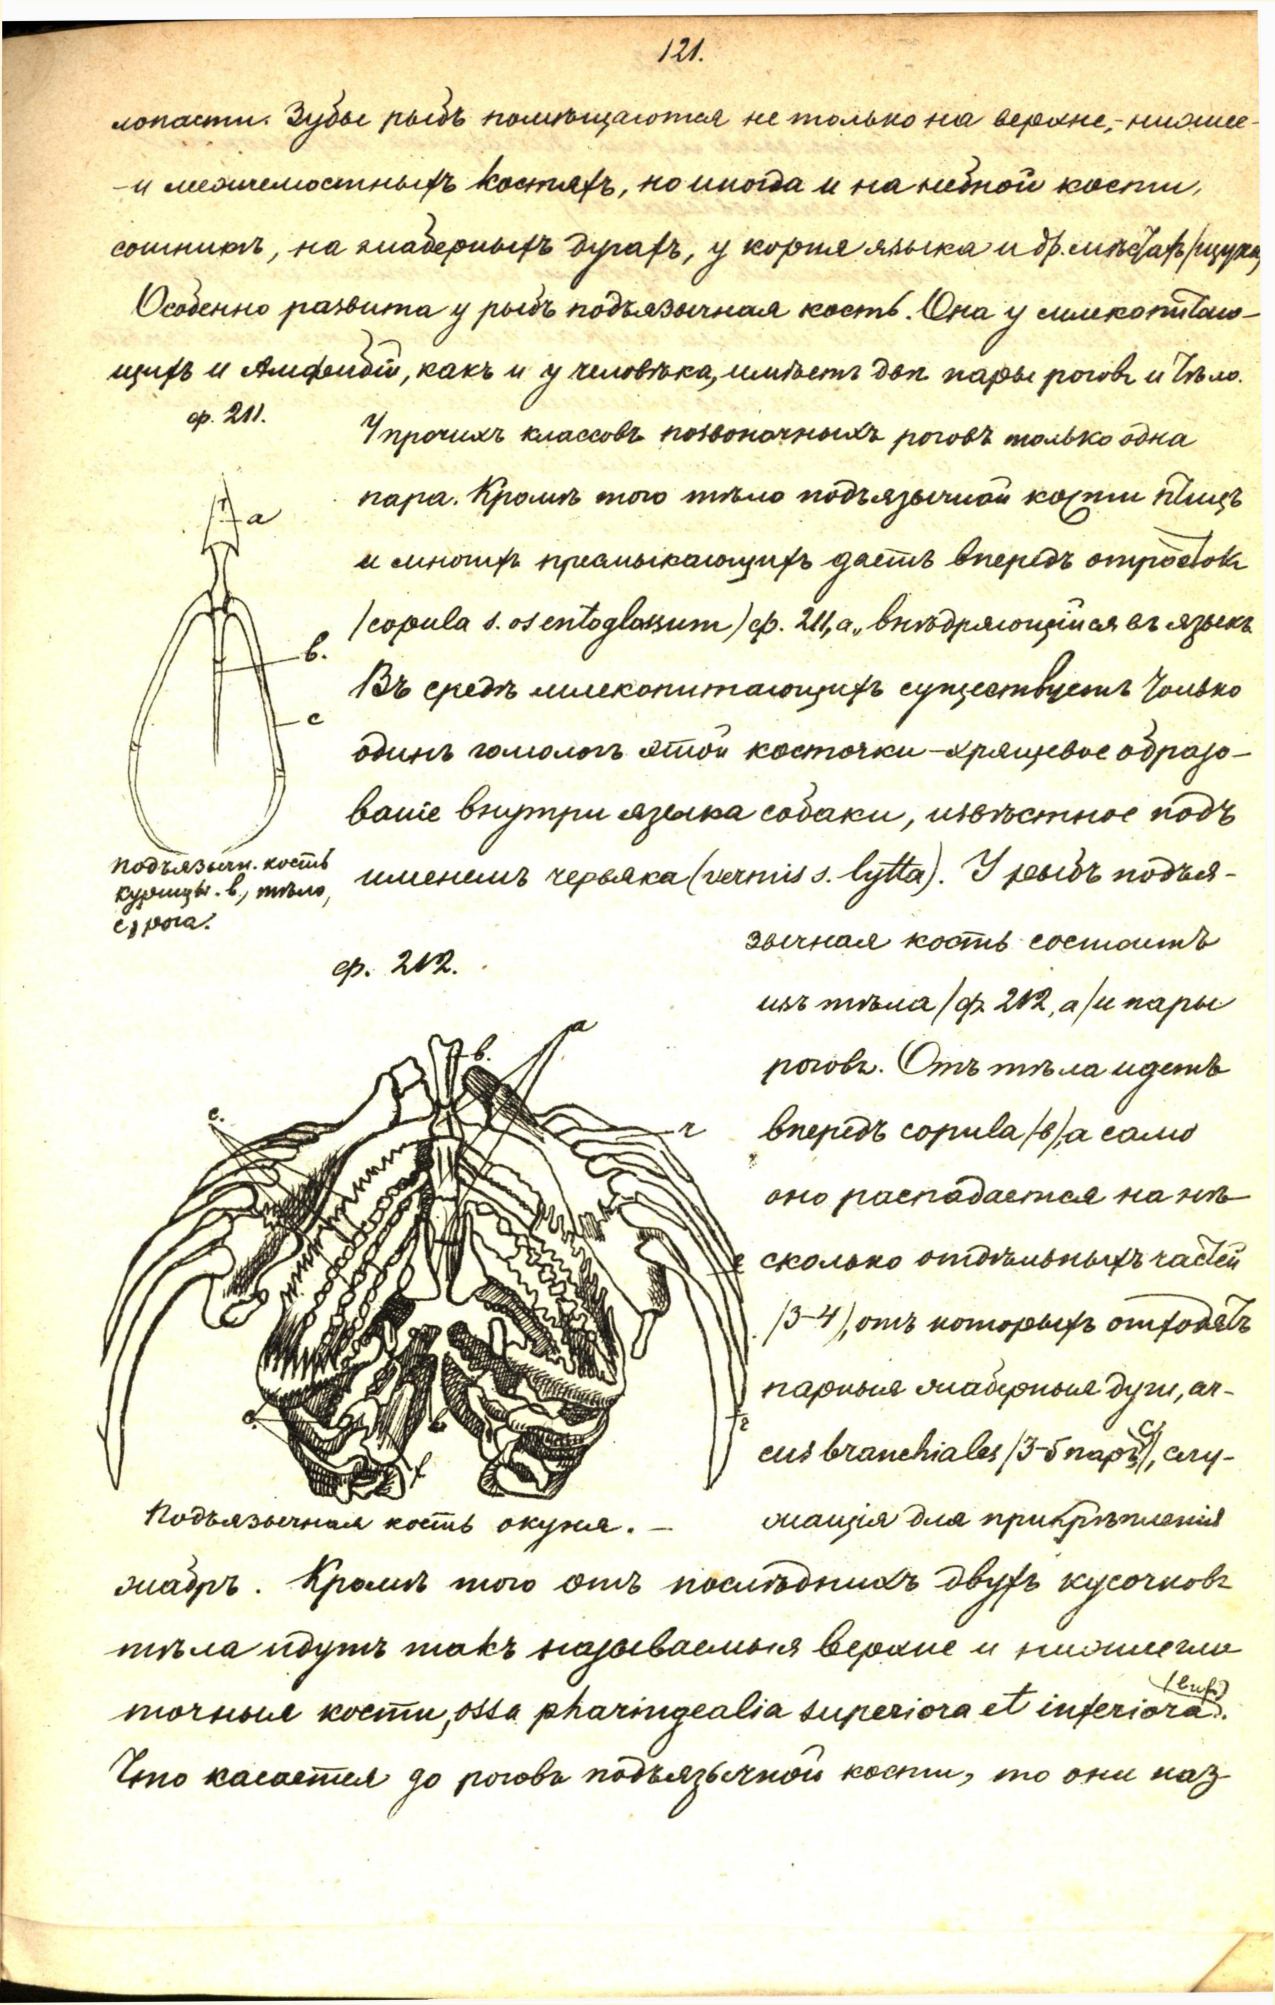 121.
лопасти. Зубы рыбъ помѣщаются не только на верхне,- нижне-
- и межчелюстныхъ костяхъ, но иногда и на небной кости,
сошникѣ, на жаберныхъ дугахъ, у корня языка и др. мѣстахъ /щука/
Особенно развита у рыбъ подъязычная кость. Она у млекопитаю-
щихъ и Амфибій, какъ и у человѣка, имѣетъ двѣ пары роговъ и тѣло.
ф. 211.
У прочихъ классовъ позвоночныхъ роговъ только одна
пара. Кромѣ того тѣло подъязычной кости птицъ
и многихъ пресмыкающихъ даетъ впередъ отростокъ
/copula s. os entoglossum/ ф. 211, а, внѣдряющійся въ языкъ
Въ средѣ млекопитающихъ существуетъ только
одинъ гомологъ этой косточки - хрящевое образо-
ваніе внутри языка собаки, извѣстное подъ
именемъ червяка (vermis s. lytta). У рыбъ подъя-
а
в.
с
подъязычн. кость
курицы. в, тѣло,
с, рога.
зычная кость состоитъ
изъ тѣла /ф 212, а/ и пары
роговъ. Отъ тѣла идетъ
впередъ copula /в/, а само
оно распадается на нѣ-
сколько отдѣльныхъ частей
/3-4/, отъ которыхъ отходятъ
парныя жаберныя дуги, ar-
cus branchiales /3-5 паръ с/, слу-
жащія для прикрѣпленія
ф. 212.
а
в.
с.
r
e
r
c.
f
Подъязычная кость окуня. -
жабръ. Кромѣ того отъ послѣднихъ двухъ кусочковъ
тѣла идутъ такъ называемыя верхне и нижнегло
точныя кости, ossa pharingealia superiora et inferiora.
Что касается до роговъ подъязычной кости, то они наз-